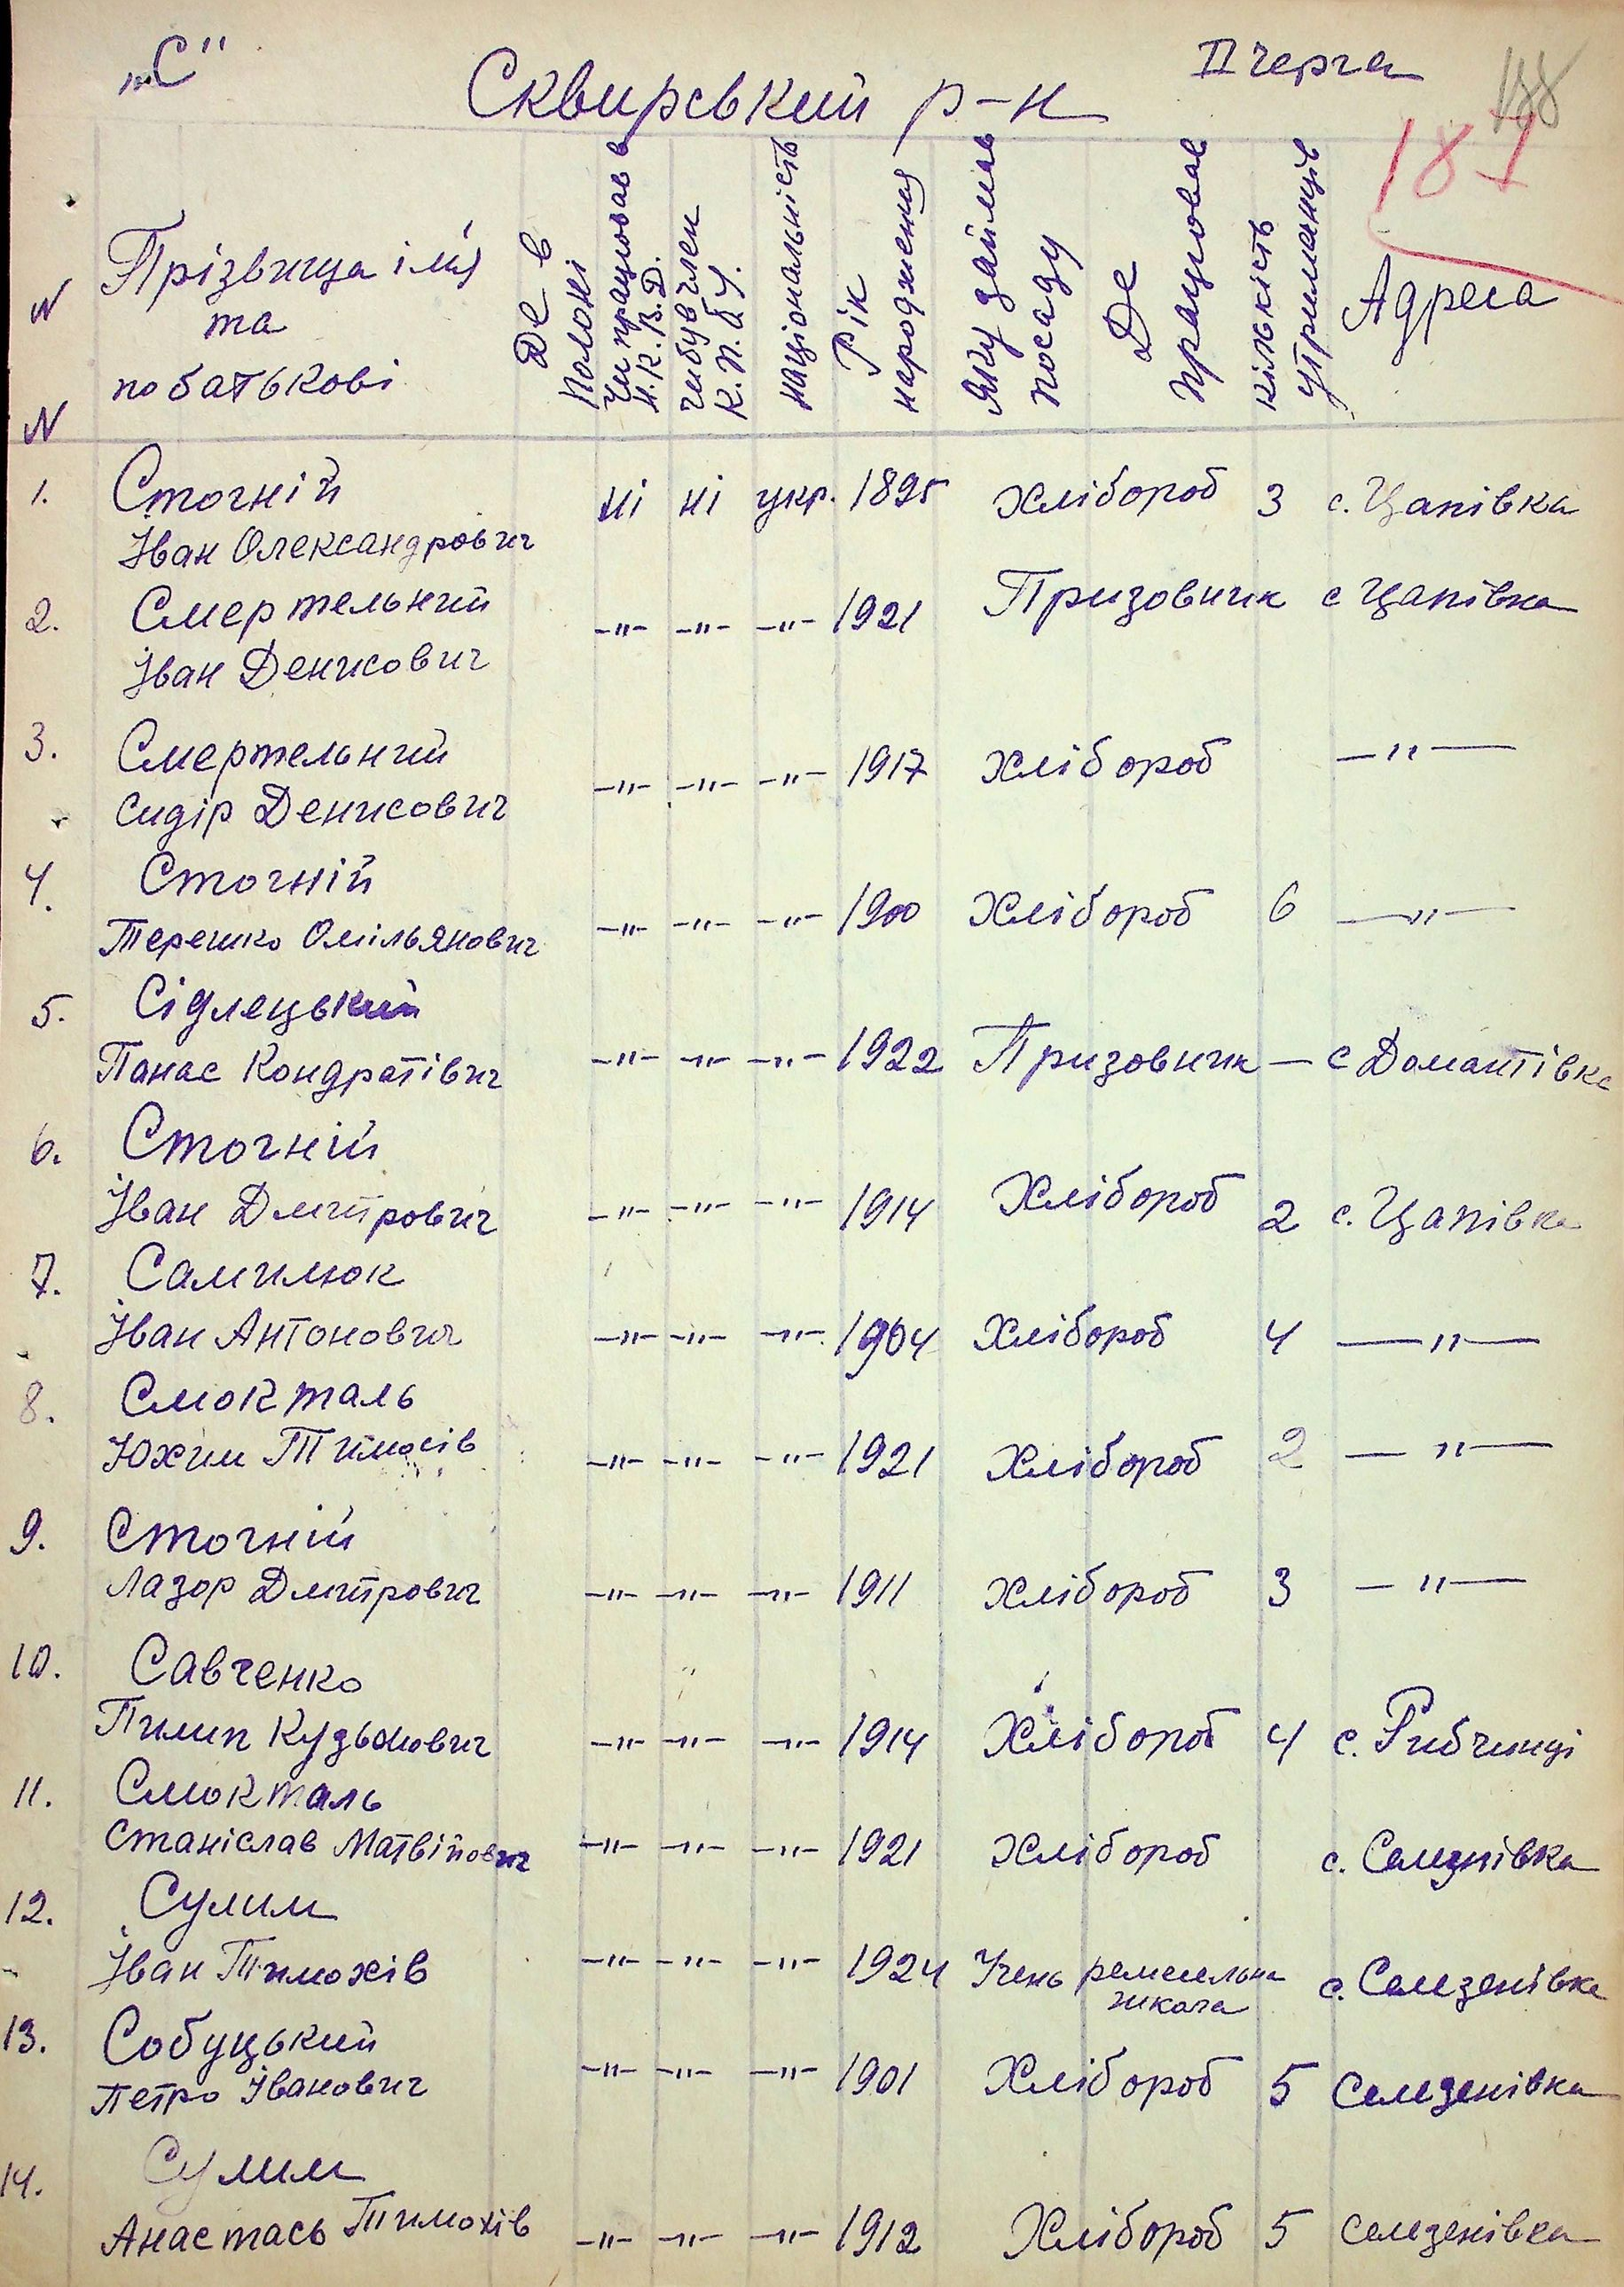 „С"
Сквирський р-н
II черга
188
187
N
N
Прізвища ім'я
та
по батькові
Де в
Полоні
Чи працював в
Н.К.В.Д.
чи був член
К.П.б.У.
національність
Рік
народження
Яку займав
посаду
Де
працював
кількість
утриманців
Адреса
1. Сточній ні ні укр. 1895 Хлібороб 3 с. Цапівка
Іван Олександрович
2. Смертельний -"- -"- -"- 1921 Призовник с Цапівка
Іван Денисович
3. Смертельний -"- -"- -"- 1917 Хлібороб -"-
Сидір Денисович
4. Сточній -"- -"- -"- 1900 Хлібороб 6 -"-
Терешко Омільянович
5. Сідлецький
Панас Кондратівич -"- -"- -"- 1922 Призовник — с Домантівка
6. Сточній
Іван Дмитрович -"- -"- -"- 1914 Хлібороб 2 с. Цапівка
7. Самилюк
Іван Антонович -"- -"- -"- 1904 Хлібороб 4 -"-
8. Смокталь
Юхим -"- -"- -"- 1921 Хлібороб 2 -"-
9. Сточній
Лазор Дмитрович -"- -"- -"- 1911 Хлібороб 3 -"-
10. Савченко
Пилип Кузьмович -"- -"- -"- 1914 Хлібороб 4 с. Рибчинці
11. Смокталь
Станіслав Матвійович -"- -"- -"- 1921 Хлібороб с.
12. Сулим
Іван Тимохів -"- -"- -"- 1924 Учень ремесельна с. Селезенівка
13. Собуцький
Петро Іванович -"- -"- -"- 1901 Хлібороб 5 Селезенівка
14. Сулим
Анастась Тимохів -"- -"- -"- 1912 Хлібороб 5 Селезенівка